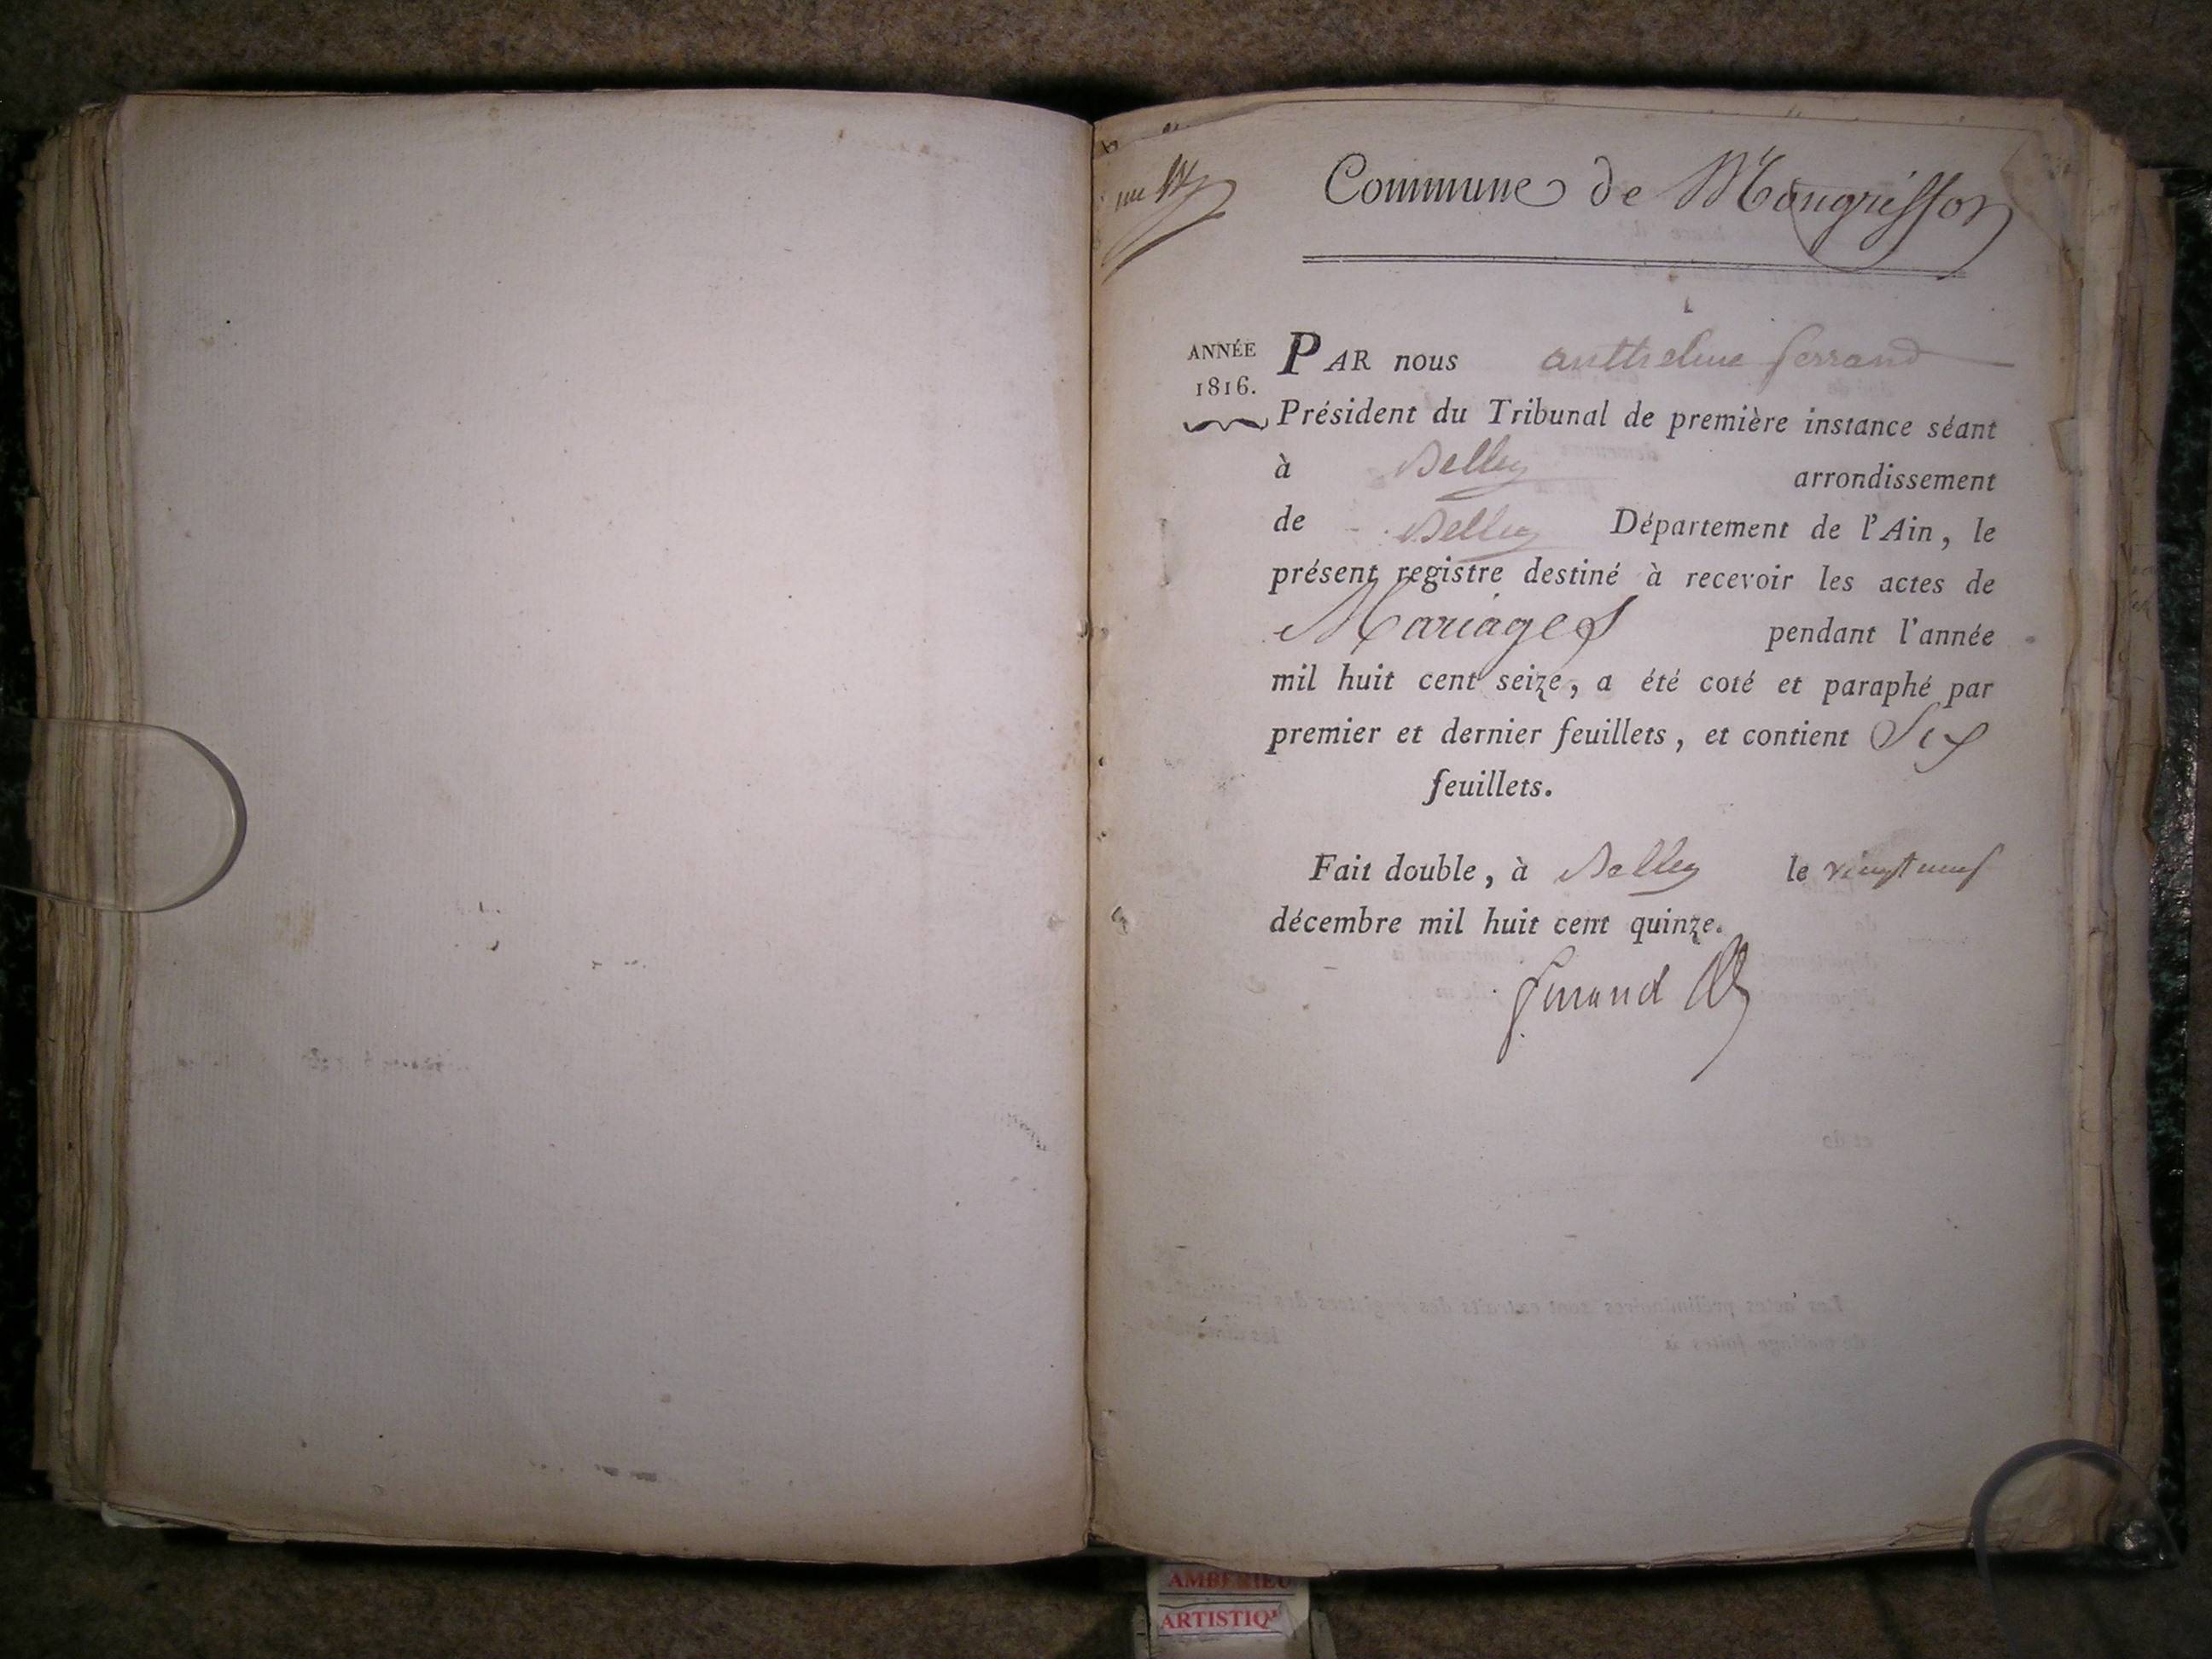 Commune de Mongrisson
ANNÉE
1816.
PAR nous anthelme ferrand
Président du Tribunal de première instance séant
à Belley arrondissement
de Belley Département de l'Ain, le
présent registre destiné à recevoir les actes de
Mariages pendant l'année
mil huit cent seize, a été coté et paraphé par
premier et dernier feuillets, et contient Six
feuillets.
Fait double, à Belley le vingt neuf
décembre mil huit cent quinze.
ferrand
AMBERIEU
ARTISTIQ